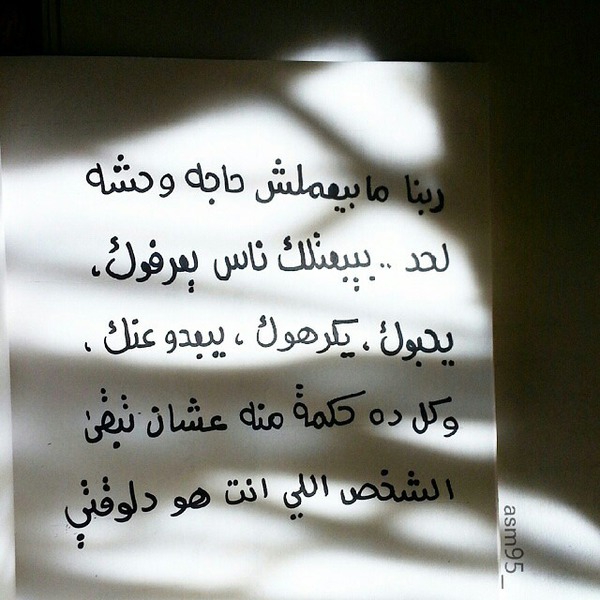 ربنا مابيعملش حاجه وحشه
لحد .. بيبعتلك ناس يعرفوك،
يحبوك، يكرهوك، يبعدو عنك،
وكل ده حكمة منه عشان تبقى
الشخص اللي انت هو دلوقتي
asm95_